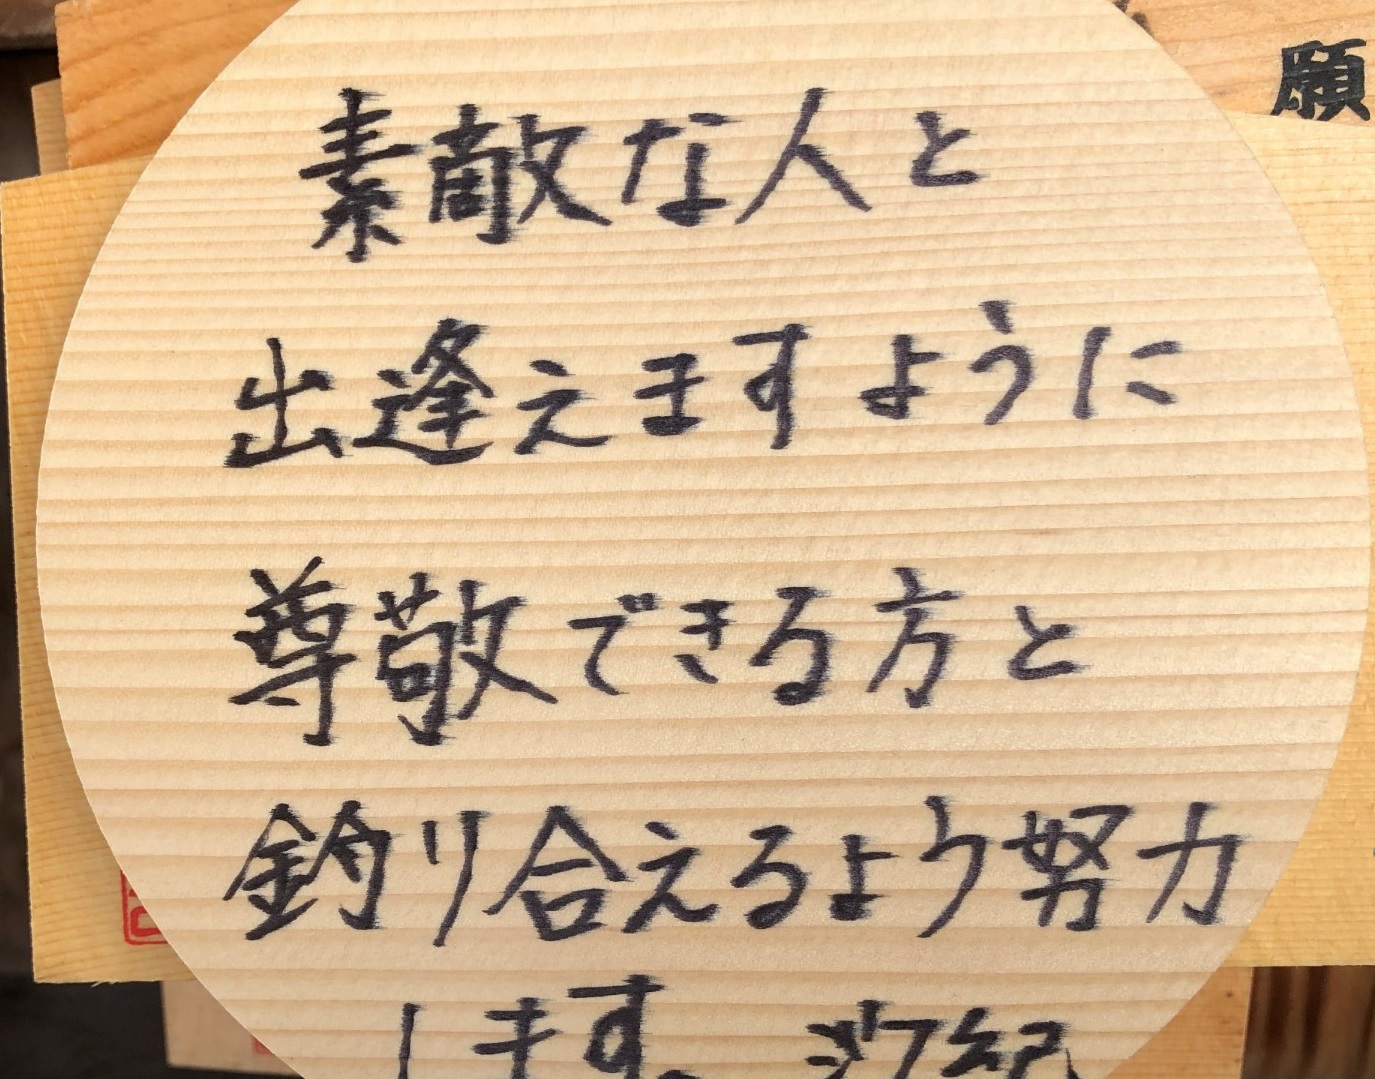 願
素敵な人と
出逢えますように
尊敬できる方と
釣り合えるよう努力
します。